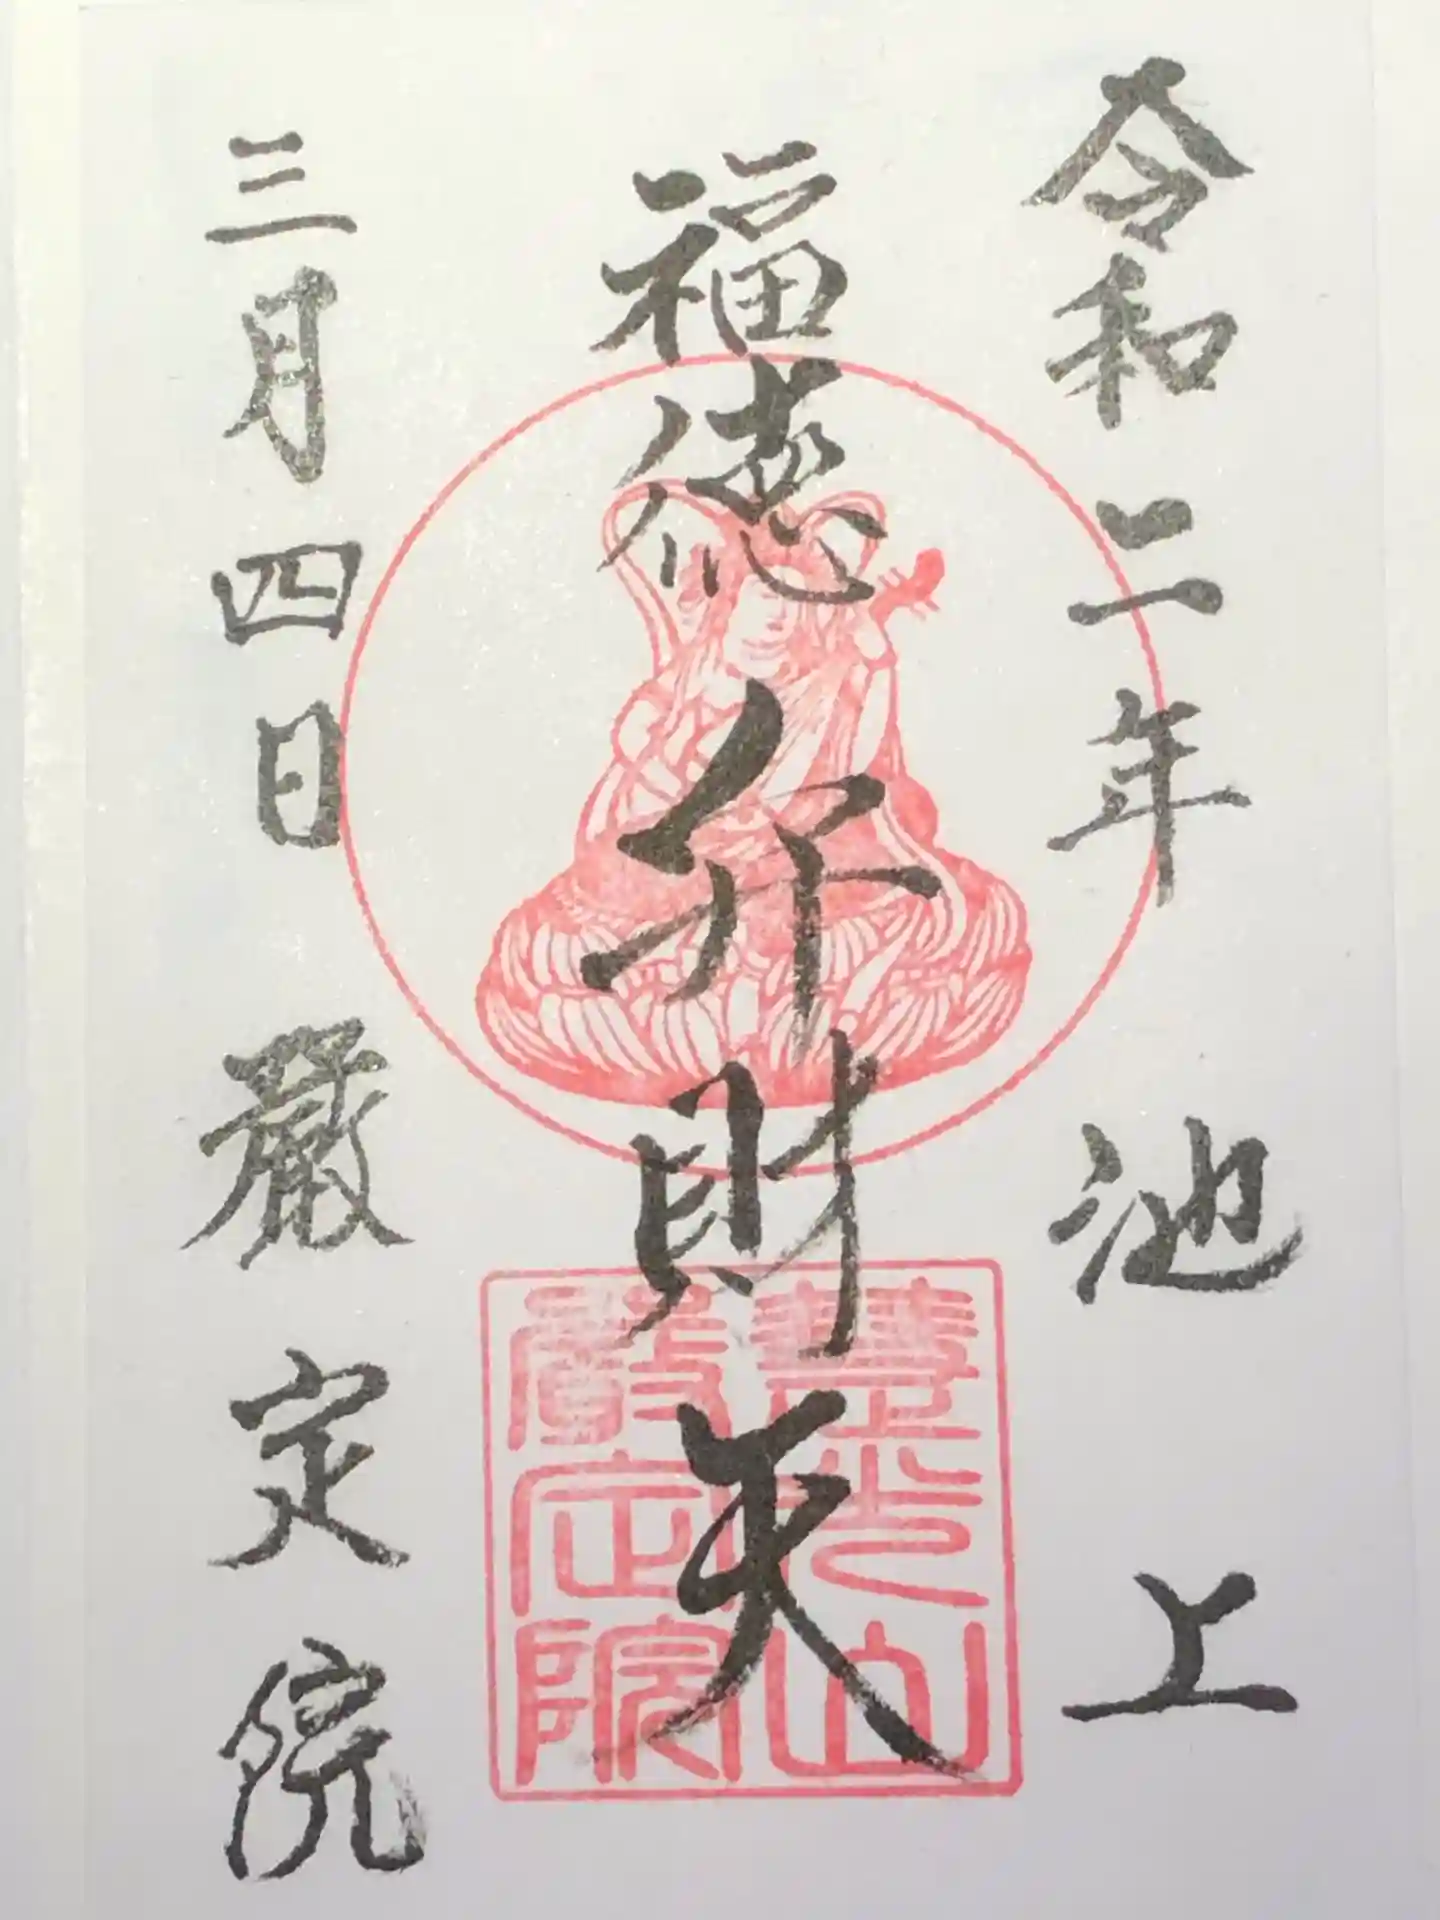 令和二年 池上
福徳弁財天
三月四日 嚴定院
慧光山
嚴定院